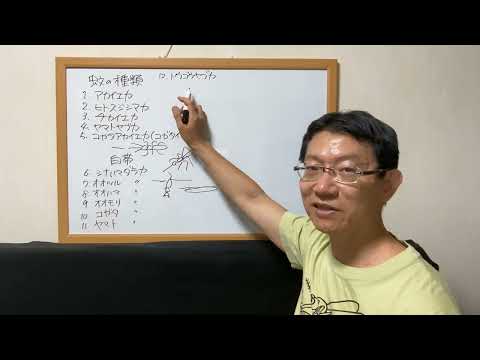 蚊の種類
1. アカイエカ
2. ヒトスジシマカ
3. チカイエカ
4. ヤマトヤブカ
5. コガタアカイエカ(コガタイ
白帯
6 シナハマダラカ
7 オオツル 〃
8 オオハマ 〃
9 オオモリ 〃
10 コガタ 〃
11 ヤマト 〃
12. トウゴウヤブカ